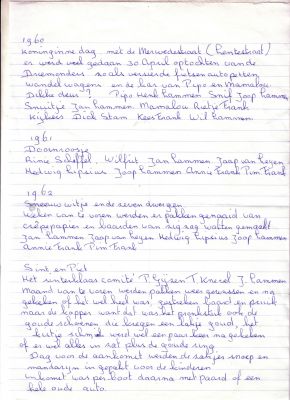 1960
Koninginne dag met de Merwedestraat (Rentestraat)
er werd veel gedaan 30 April optochten van de
Driemonders zoals versierde fietsen autopetten
wandel wagens en de kar van Pipo en Mamalou
Dikke deur ? Pipo Henk hammen Snuf Jaap hammen
Snuitje Jan hammen Mamalou Rietje Frank
Kijkers Dick Stam Kees Frank Wil hammen
1961
Doornroosje
Rinie Wilfrut Jan hammen Jaap van heyen
Hedwig Lipsius Jaap hammen Annie Frank Pim Frank
1962
Sneeuwwitje en de zeven dwergen
Weken van te voren werden er pakken genaaid van
crêpepapier en baarden van zig zag watten gemaakt
Jan hammen Jaap van heyen Hedwig Lipsius Jaap hammen
Annie Frank Pim Frank
Sint en Piet
Het sinterklaas comité P. Gijzen T. Knecel J. hammen
Maand van te voren werden pakken weer gewassen en na
gekeken of het wel heel was, gestreken baard en pruik
naar de kapper want dat was het pronkstuk ook de
goude schoenen die kregen een lakje goud, het
werd wel een paar keer na gekeken
of er wel alles in zat plus de goude ring
Dag voor de aankomst werden de zakjes snoep en
mandarijn in gepakt voor de kinderen
aankomst was per boot daarna met paard of een
hele oude auto.